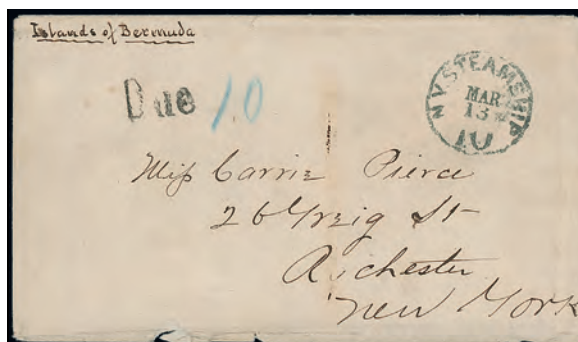 Islands of Bermuda
Due 10
N.Y. STEAMSHIP
MAR
13
10
Miss Carrie Pierce
26 Greig St
Rochester
New York